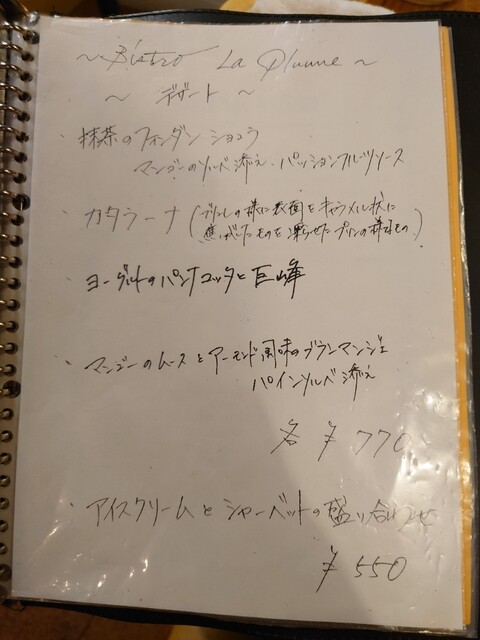 ～ Bistro La Plume ～
～ デザート ～
・抹茶のフォンダンショコラ
マンゴーのソルベ添え・パッションフルーツソース
・カタラーナ (ブリュレの様に表面をキャラメル状に
焦がしたものを凍らせたプリンの様なもの。)
・ヨーグルトのパンナコッタと巨峰
・マンゴーのムースとアーモンド風味のブランマンジェ
パインソルベ添え
各 ¥770
・アイスクリームとシャーベットの盛り合わせ
¥550